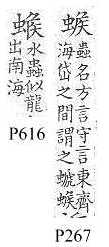 䗔
蟲名方言守言東齊
海岱之間謂之螔䗔
P267
䗔
水蟲似龍
出南海
P616